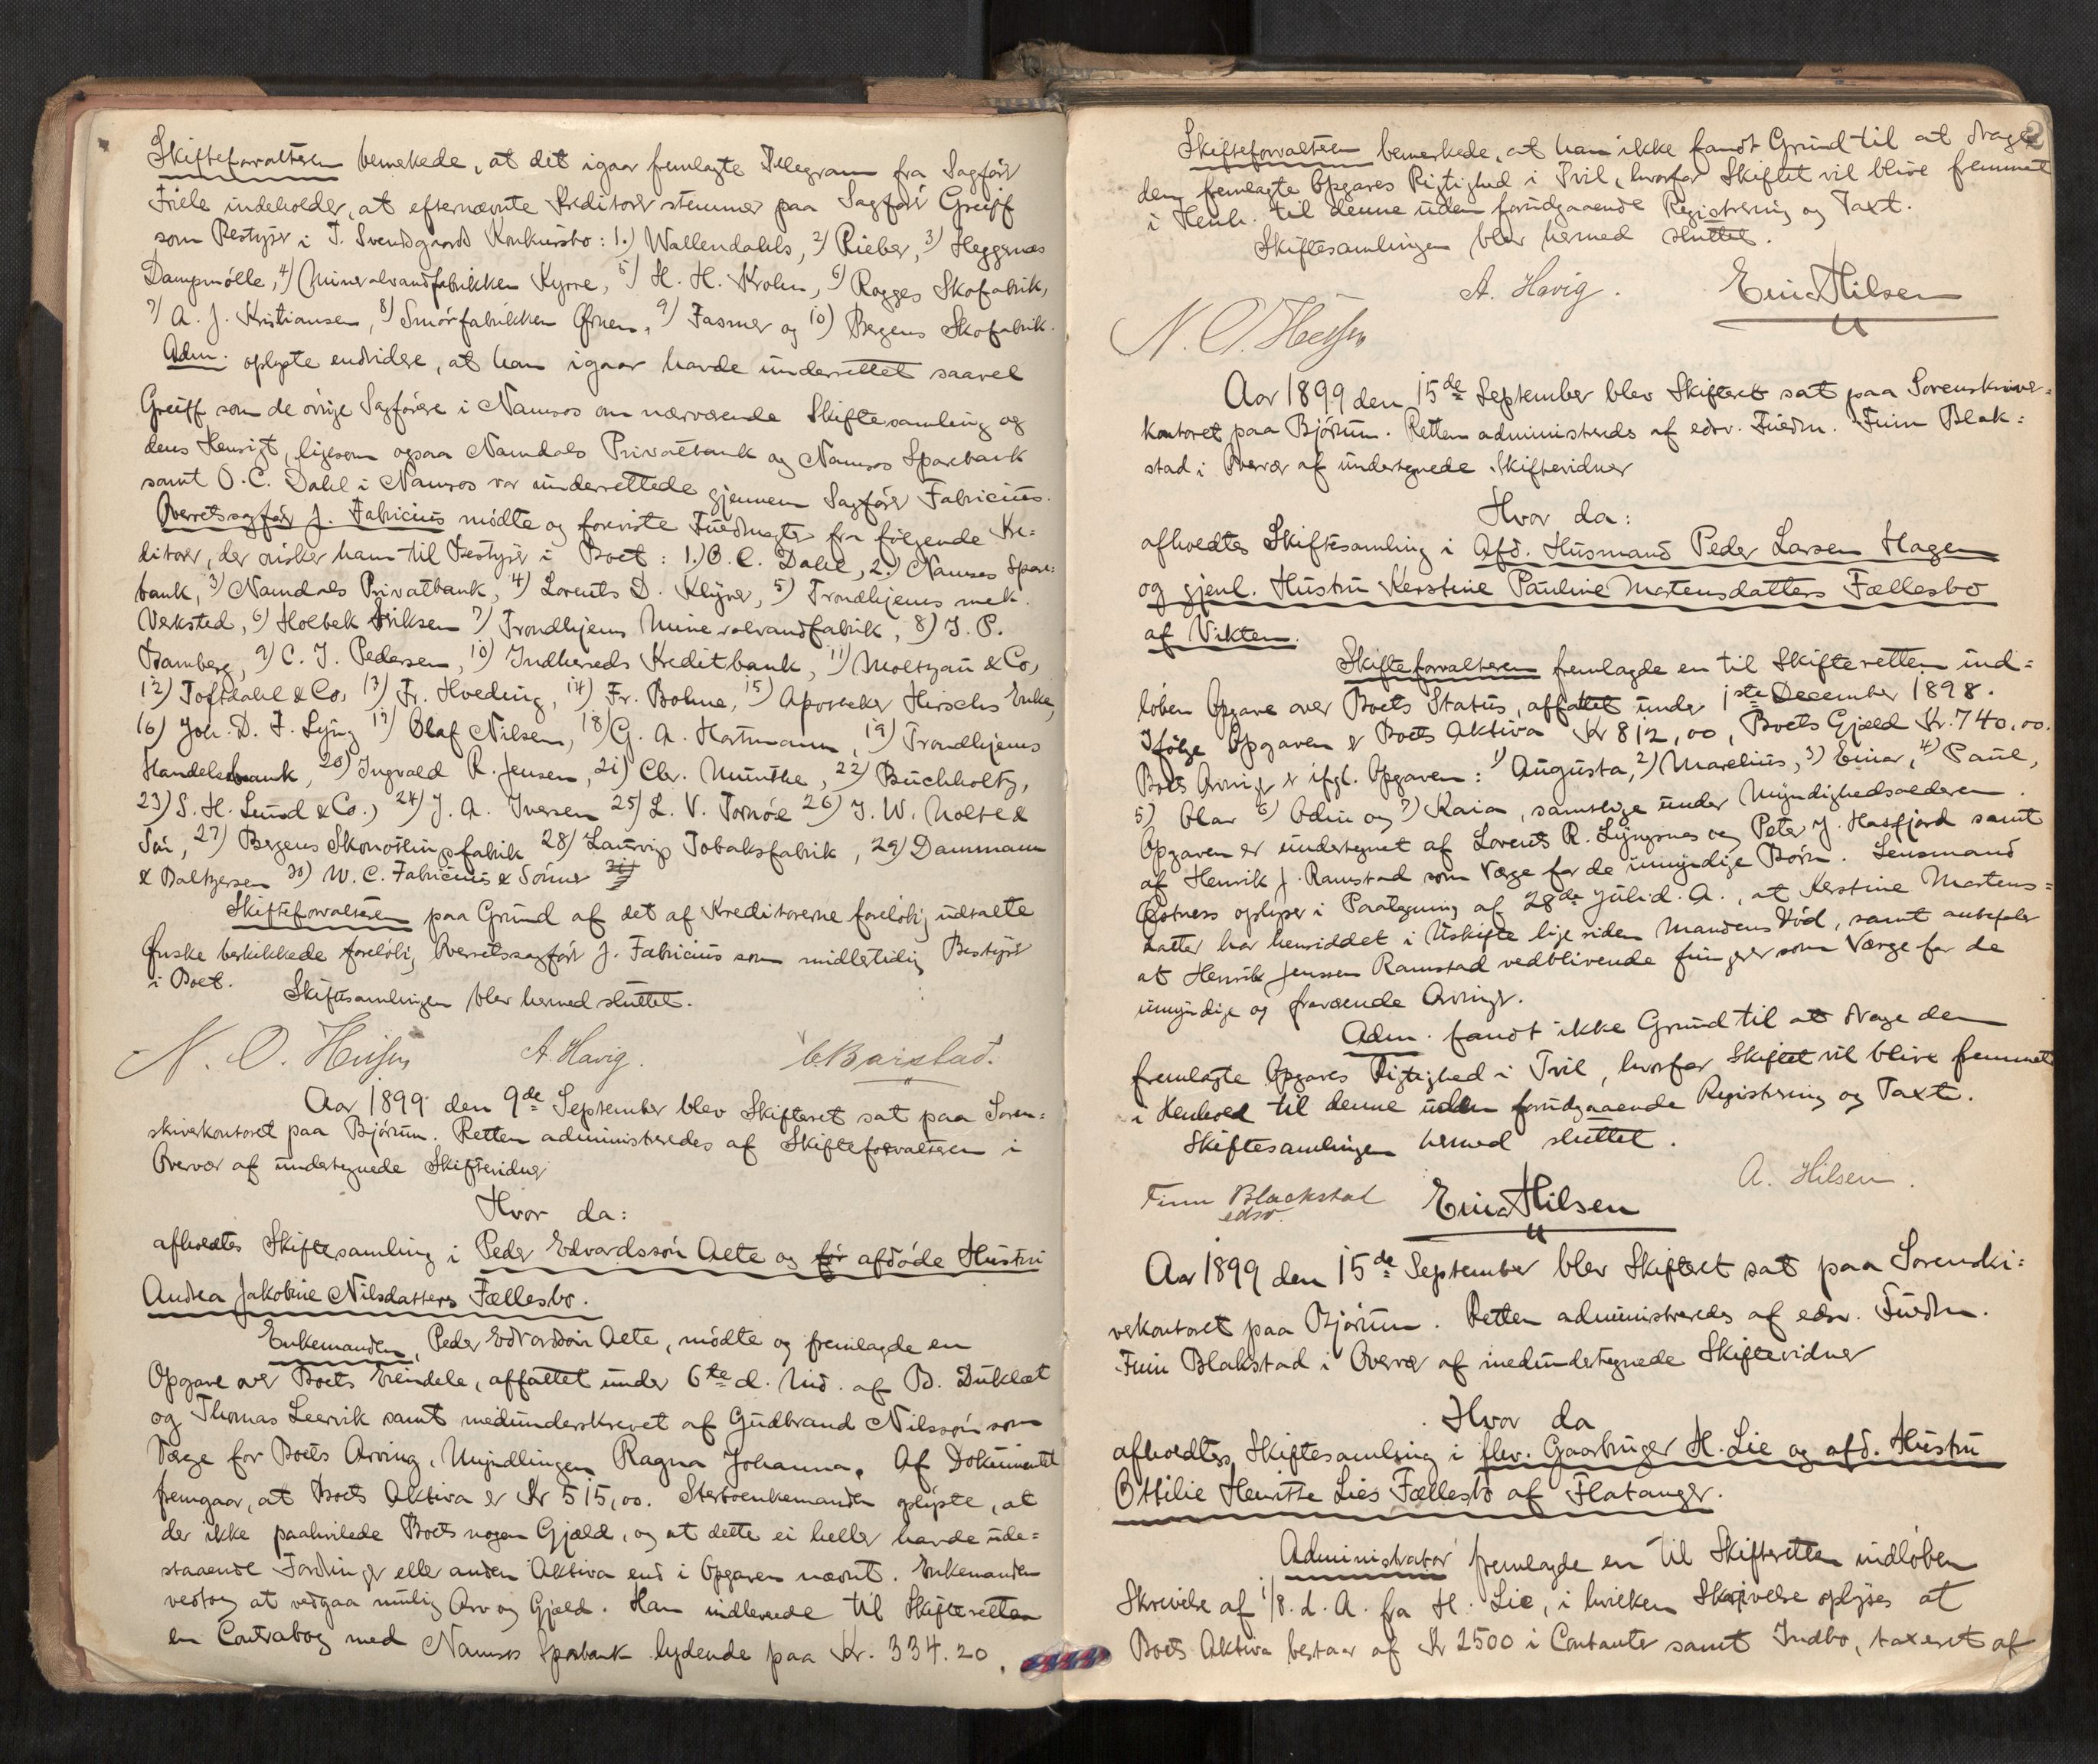 Skifteforvalteren bemerkede, at det igaar fremlagte Telegram fra Sagfører
Friele indeholder, at efternævnte Kreditorer stemmer paa Sagfører Greiff
som Bestyrer i J. Svendgaard Konkursbo: 1.) Wallendahls, 2) Rieber, 3) Heggernæs
Dampmølle, 4) Mineralvandfabrikken Kyrre, 5) H. H. Krohn, 6) Rogges Skofabrik,
7) A. J. Kristiansen, 8) Smørfabrikken Ørnen, 9) Fasmer og 10) Bergens Skofabrik.
Adm. oplyste endvidere, at han igaar havde underrettet saavel
Greiff som de øvrige Sagførere i Namsos om nærværende Skiftesamling og
dens Hensigt, ligesom ogsaa Namdals Privatbank og Namsos Sparebank
samt O. C. Dahl i Namsos var underrettede gjennem Sagfører Fabricius.
Overretssagfører J. Fabricius mødte og foreviste Fuldmagter fra følgende Kre=
ditorer, der ønsker ham til Bestyrer i Boet: 1.) O. C. Dahl, 2.) Namsos Spare=
bank, 3) Namdals Privatbank, 4) Lorents D. Klüver, 5) Trondhjems mek.
Verksted, 6) Holbek Eriksen 7) Trondhjems Mineralvandfabrik, 8) J. P.
Bamberg, 9) C. J. Pedersen, 10) Indherreds Kreditbank, 11) Moltzau & Co,
12) Toftdahl & Co, 13) Fr. Hveding, 14) Fr. Bohne, 15) Apotheker Hirschs Enke,
16) Joh. D. F. Lyng 17) Olaf Nilsen, 18) G. A. Hartmann, 19) Trondhjems
Handelsbank, 20) Ingvald R. Jensen, 21) Chr. Munthe, 22) Buchholtz,
23) S. H. Lund & Co., 24) J. A. Iversen 25) L. V. Tornøe 26) J. W. Moltke &
Søn, 27) Bergens Skonotlingsfabrik 28) Laurvig Tobaksfabrik, 29) Dammann
& Baltzersen 30) W. C. Fabricius & Sønner 31)
Skifteforvalteren paa Grund af det af Kreditorerne foreløbig udtalte
Ønske beskikkede foreløbig Overretssagfører J. Fabricius som midlertidig Bestyrer
i Boet.
Skiftesamlingen blev hermed sluttet.
N. O. A. Havig. C. Barstad.
Aar 1899 den 9de September blev Skifteret sat paa Soren=
skriverkontoret paa Bjørum. Retten administreredes af Skifteforvalteren i
Overvær af undertegnede Skiftevidner
Hvor da:
afholdtes Skiftesamling i Peder Edvardssøn Aete og før afdøde Hustru
Andrea Jakobine Nilsdatters Fællesbo.
Enkemanden, Peder Edvardssøn Aete, mødte og fremlagde en
Opgave over Boets Eiendele, affattet under 6te d. Md. af B. Duklæt
og Thomas Leervik samt medunderskrevet af Gudbrand Nilssøn som
Værge for Boets Arving, Myndlingen Ragna Johanna. Af Dokumentet
fremgaar, at Boets Aktiva er Kr 515,00. Sterboenkemanden oplyste, at
der ikke paahvilede Boets nogen Gjæld, og at dette ei heller havde ude=
staaende Fordringer eller anden Aktiva end i Opgaven nævnt. Enkemanden
vedtog at vedgaa mulig Arv og Gjæld. Han indleverede til Skifteretten
en Contrabog med Namsos Sparebank lydende paa Kr. 334.20.
2
Skifteforvalteren bemerkede, at han ikke fandt Grund til at drage
den fremlagte Opgaves Rigtighed i Tvil, hvorfor Skiftet vil blive fremmet
i Henh. til denne uden forudgaaende Registrering og Taxt.
Skiftesamlingen blev hermed sluttet.
N. O. A. Havig. Einar Hilsen
Aar 1899 den 15de September blev Skifteret sat paa Sorenskriver=
kontoret paa Bjørum. Retten administreredes af edsv. Fuldm. Finn Blak=
stad i Overvær af undertegnede Skiftevidner
Hvor da:
afholdtes Skiftesamling i Afd. Husmand Peder Larsen Hagen
og gjenl. Hustru Kerstine Pauline Mortensdatters Fællesbo
af Vikten.
Skifteforvalteren fremlagde en til Skifteretten ind=
løben Opgave over Boets Status, affattet under 1ste December 1898.
Ifølge Opgaven er Boets Aktiva Kr 812,00, Boets Gjæld Kr. 740,00.
Boets Arvinger er ifgl. Opgaven: 1) Augusta, 2) Marelius, 3) Einar, 4) Paul,
5) Olav 6) Odin og 7) Kaia, samtlige under Myndighedsalderen.
Opgaven er undertegnet af Lorents R. Lyngsnes og Peter J. Hasfjord samt
af Henrik J. Ramstad som Værge for de umyndige Børn. Lensmand
Qvotness oplyser i Paategning af 28de Juli d. A., at Kerstine Mortens=
datter har hensiddet i Uskifte lige siden Mandens Død, samt anbefaler
at Henrik Jenssen Ramstad vedblivende fungerer som Værge for de
umyndige og fraværende Arvinger.
Adm. fandt ikke Grund til at drage den
fremlagte Opgaves Rigtighed i Tvil, hvorfor Skiftet vil blive fremmet
i Henhold til denne uden forudgaaende Registrering og Taxt.
Skiftesamlingen hermed sluttet.
Finn Blackstad Einar Hilsen A. Hilsen.
edsv.
Aar 1899 den 15de September blev Skifteret sat paa Sorenskri=
verkontoret paa Bjørum. Retten administreredes af edsv. Fuldm.
Finn Blakstad i Overvær af medundertegnede Skiftevidner
Hvor da
afholdtes Skiftesamling i flev. Gaardbruger H. Lie og afd. Hustru
Ottilie Henritte Lies Fællesbo af Flatanger.
Administrator fremlagde en til Skifteretten indløben
Skrivelse af 1/8. d. A. fra H. Lie, i hvilken Skrivelse oplyses at
Boets Aktiva bestaar af Kr 2500 i Contanter samt Indbo, taxeret af